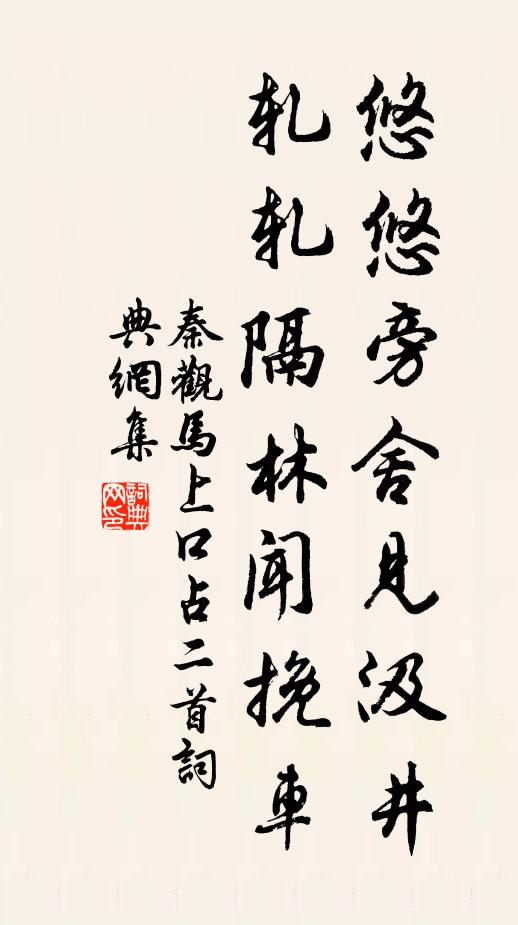 悠悠旁舍見汲井
軋軋隔林聞挽車
秦觀馬上口占二首詞
典網集
詞典网印